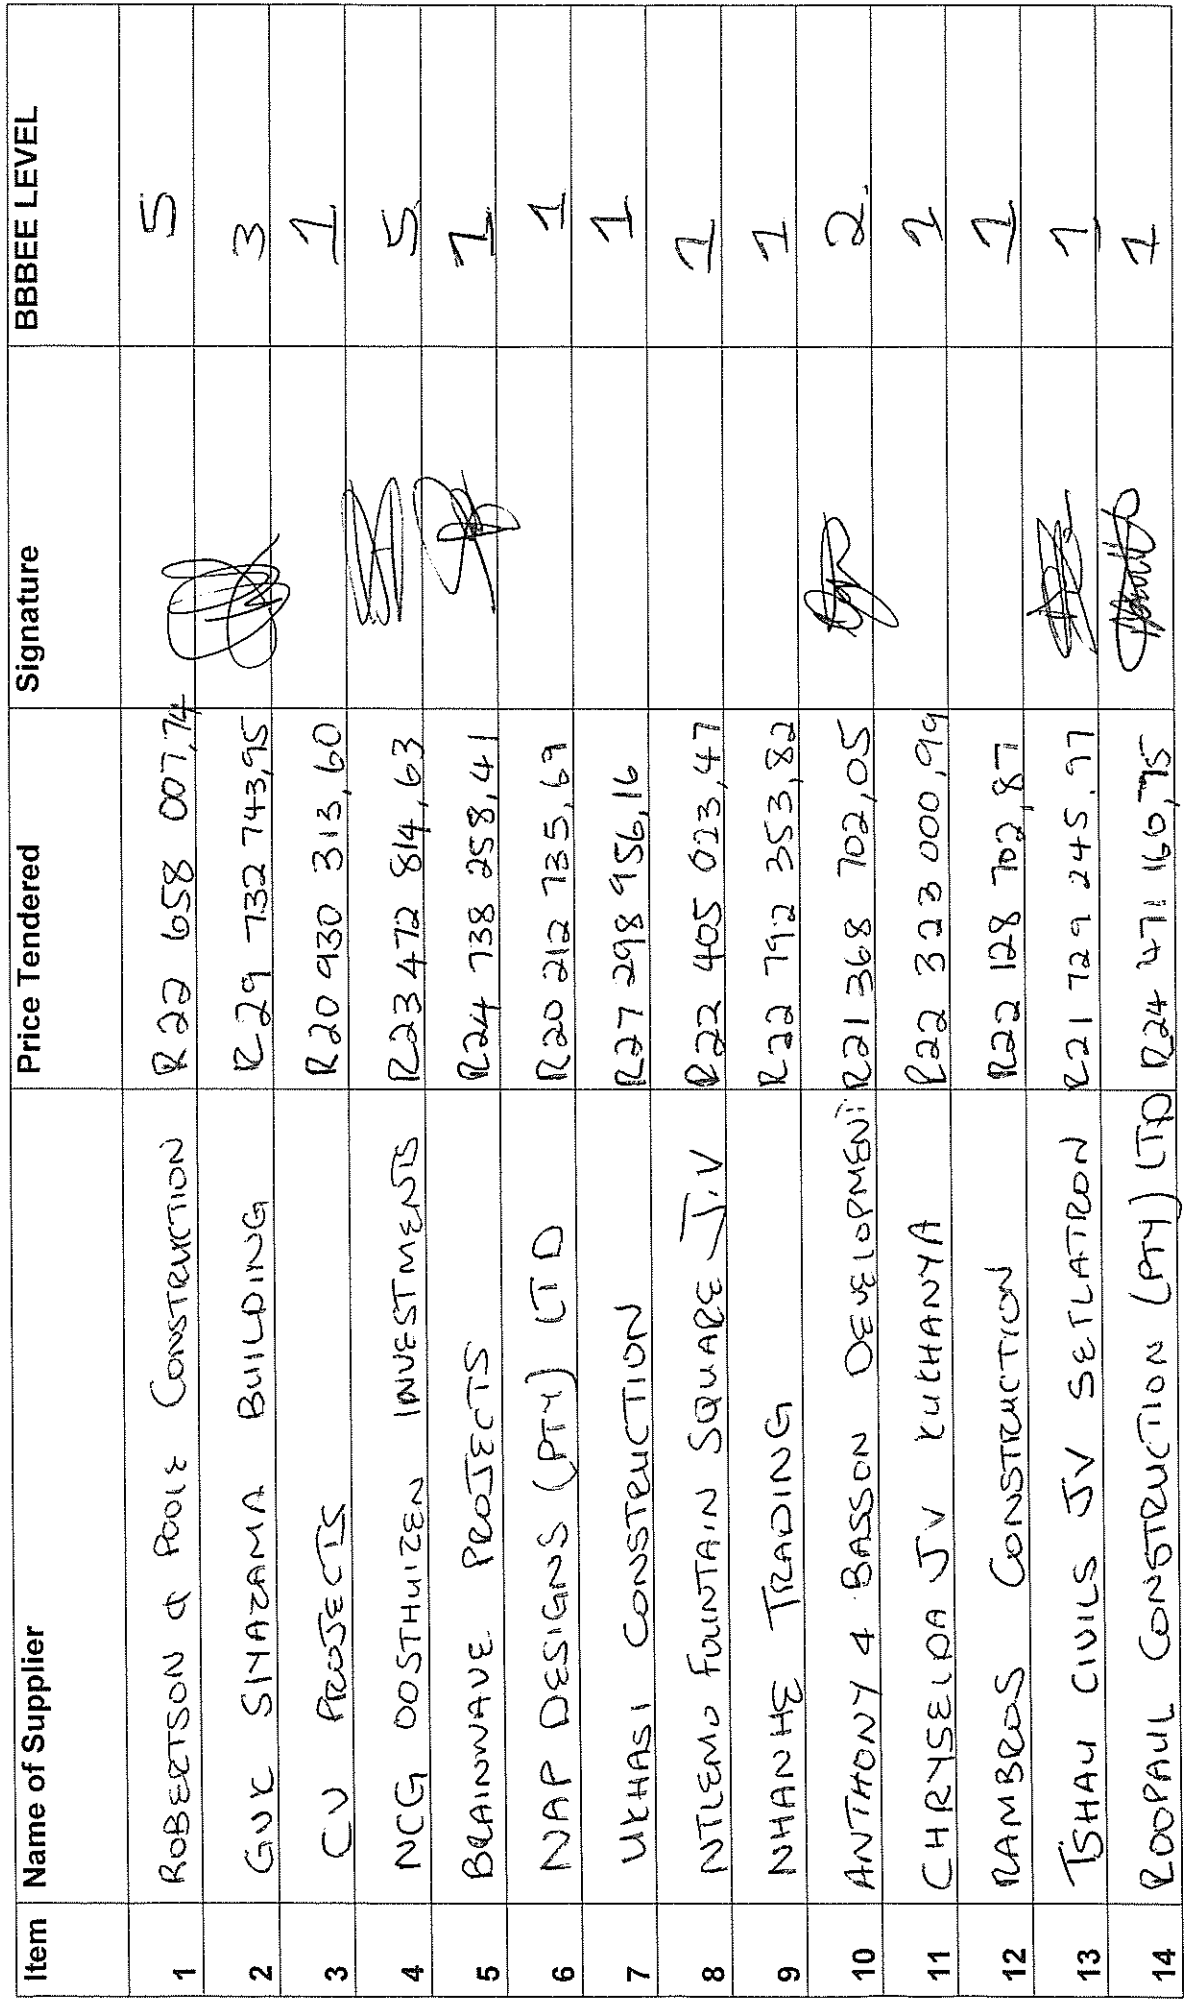 Item Name of Supplier Price Tendered Signature BBBEE LEVEL
1 ROBERTSON & POOLE CONSTRUCTION R22 658 007,74 5
2 GVK SIYAZAMA BUILDING R29 732 743,95 3
3 CV PROJECTS R20 930 313,60 1
4 NCG OOSTHUIZEN INVESTMENTS R23 472 814,63 5
5 BRAINWAVE PROJECTS R24 738 258,41 1
6 NAP DESIGNS (PTY) LTD R20 212 735,69 1
7 UKHASI CONSTRUCTION R27 298 956,16 1
8 NTLEMO FOUNTAIN SQUARE J.V R22 405 023,47 1
9 NHANHE TRADING R22 792 353,82 1
10 ANTHONY 4 BASSON DEVELOPMENT R21 368 702,05 2.
11 CHRYSELDA JV KUKHANYA R22 323 000,99 1
12 RAMBROS CONSTRUCTION R22 128 702,87 1
13 TSHAU CIVILS JV SETLATRON R21 729 245,97 1
14 ROOPAUL CONSTRUCTION (PTY) LTD R24 471 160,75 1